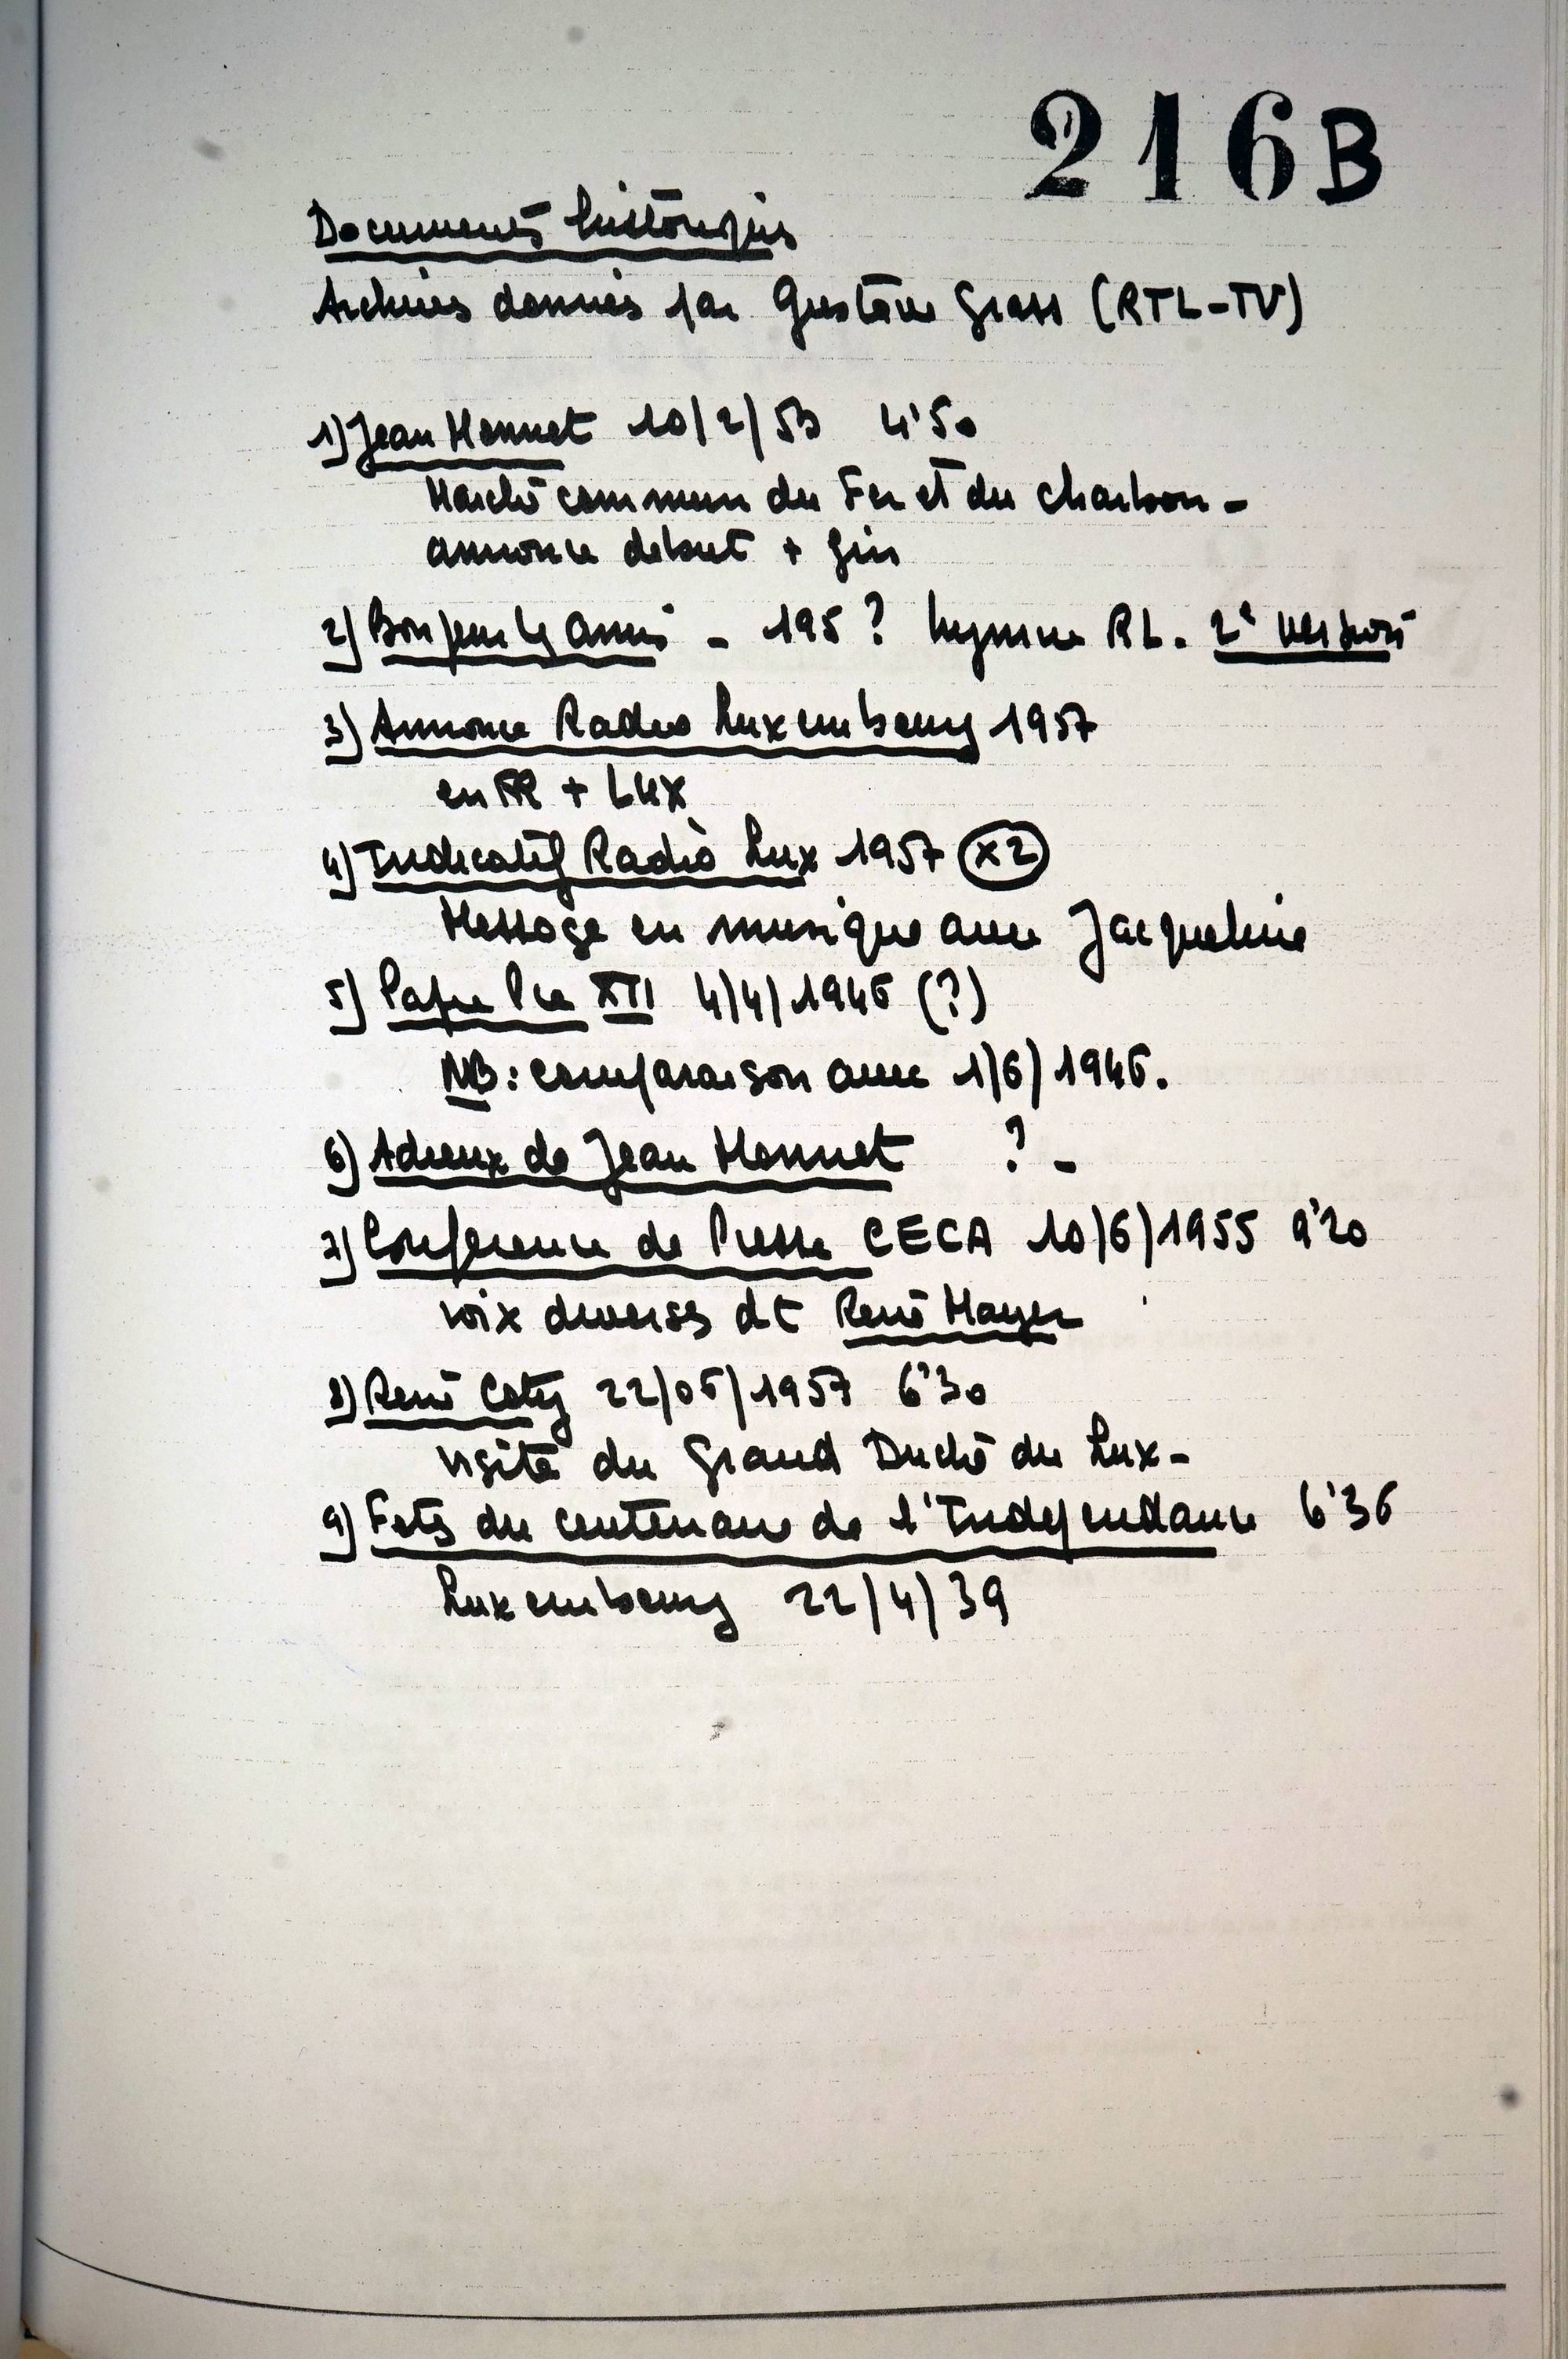 216B
Documents historiques
Archives données par Gustave Grass (RTL-TV)
1) Jean Monnet 10/2/53 4'50
Marché commun du Fer et du charbon -
annonce debut + fin
2) Bonjour les amis - 195? hymne RL. 2e version
3) Annonce Radio Luxembourg 1957
en FR + LUX
4) Indicatif Radio Lux 1957 (x2)
Message en musique avec Jacqueline
5) Pape Pie XII 4/4/1946 (?)
NB: comparaison avec 1/6/1946.
6) Adieux de Jean Monnet ? -
7) Conférence de Presse CECA 10/6/1955 9'20
voix diverses dt René Mayer
8) René Coty 22/06/1957 6'30
visite du Grand Duché du Lux-
9) Fetes du centenaire de l'Independance 6'36
Luxembourg 22/4/39